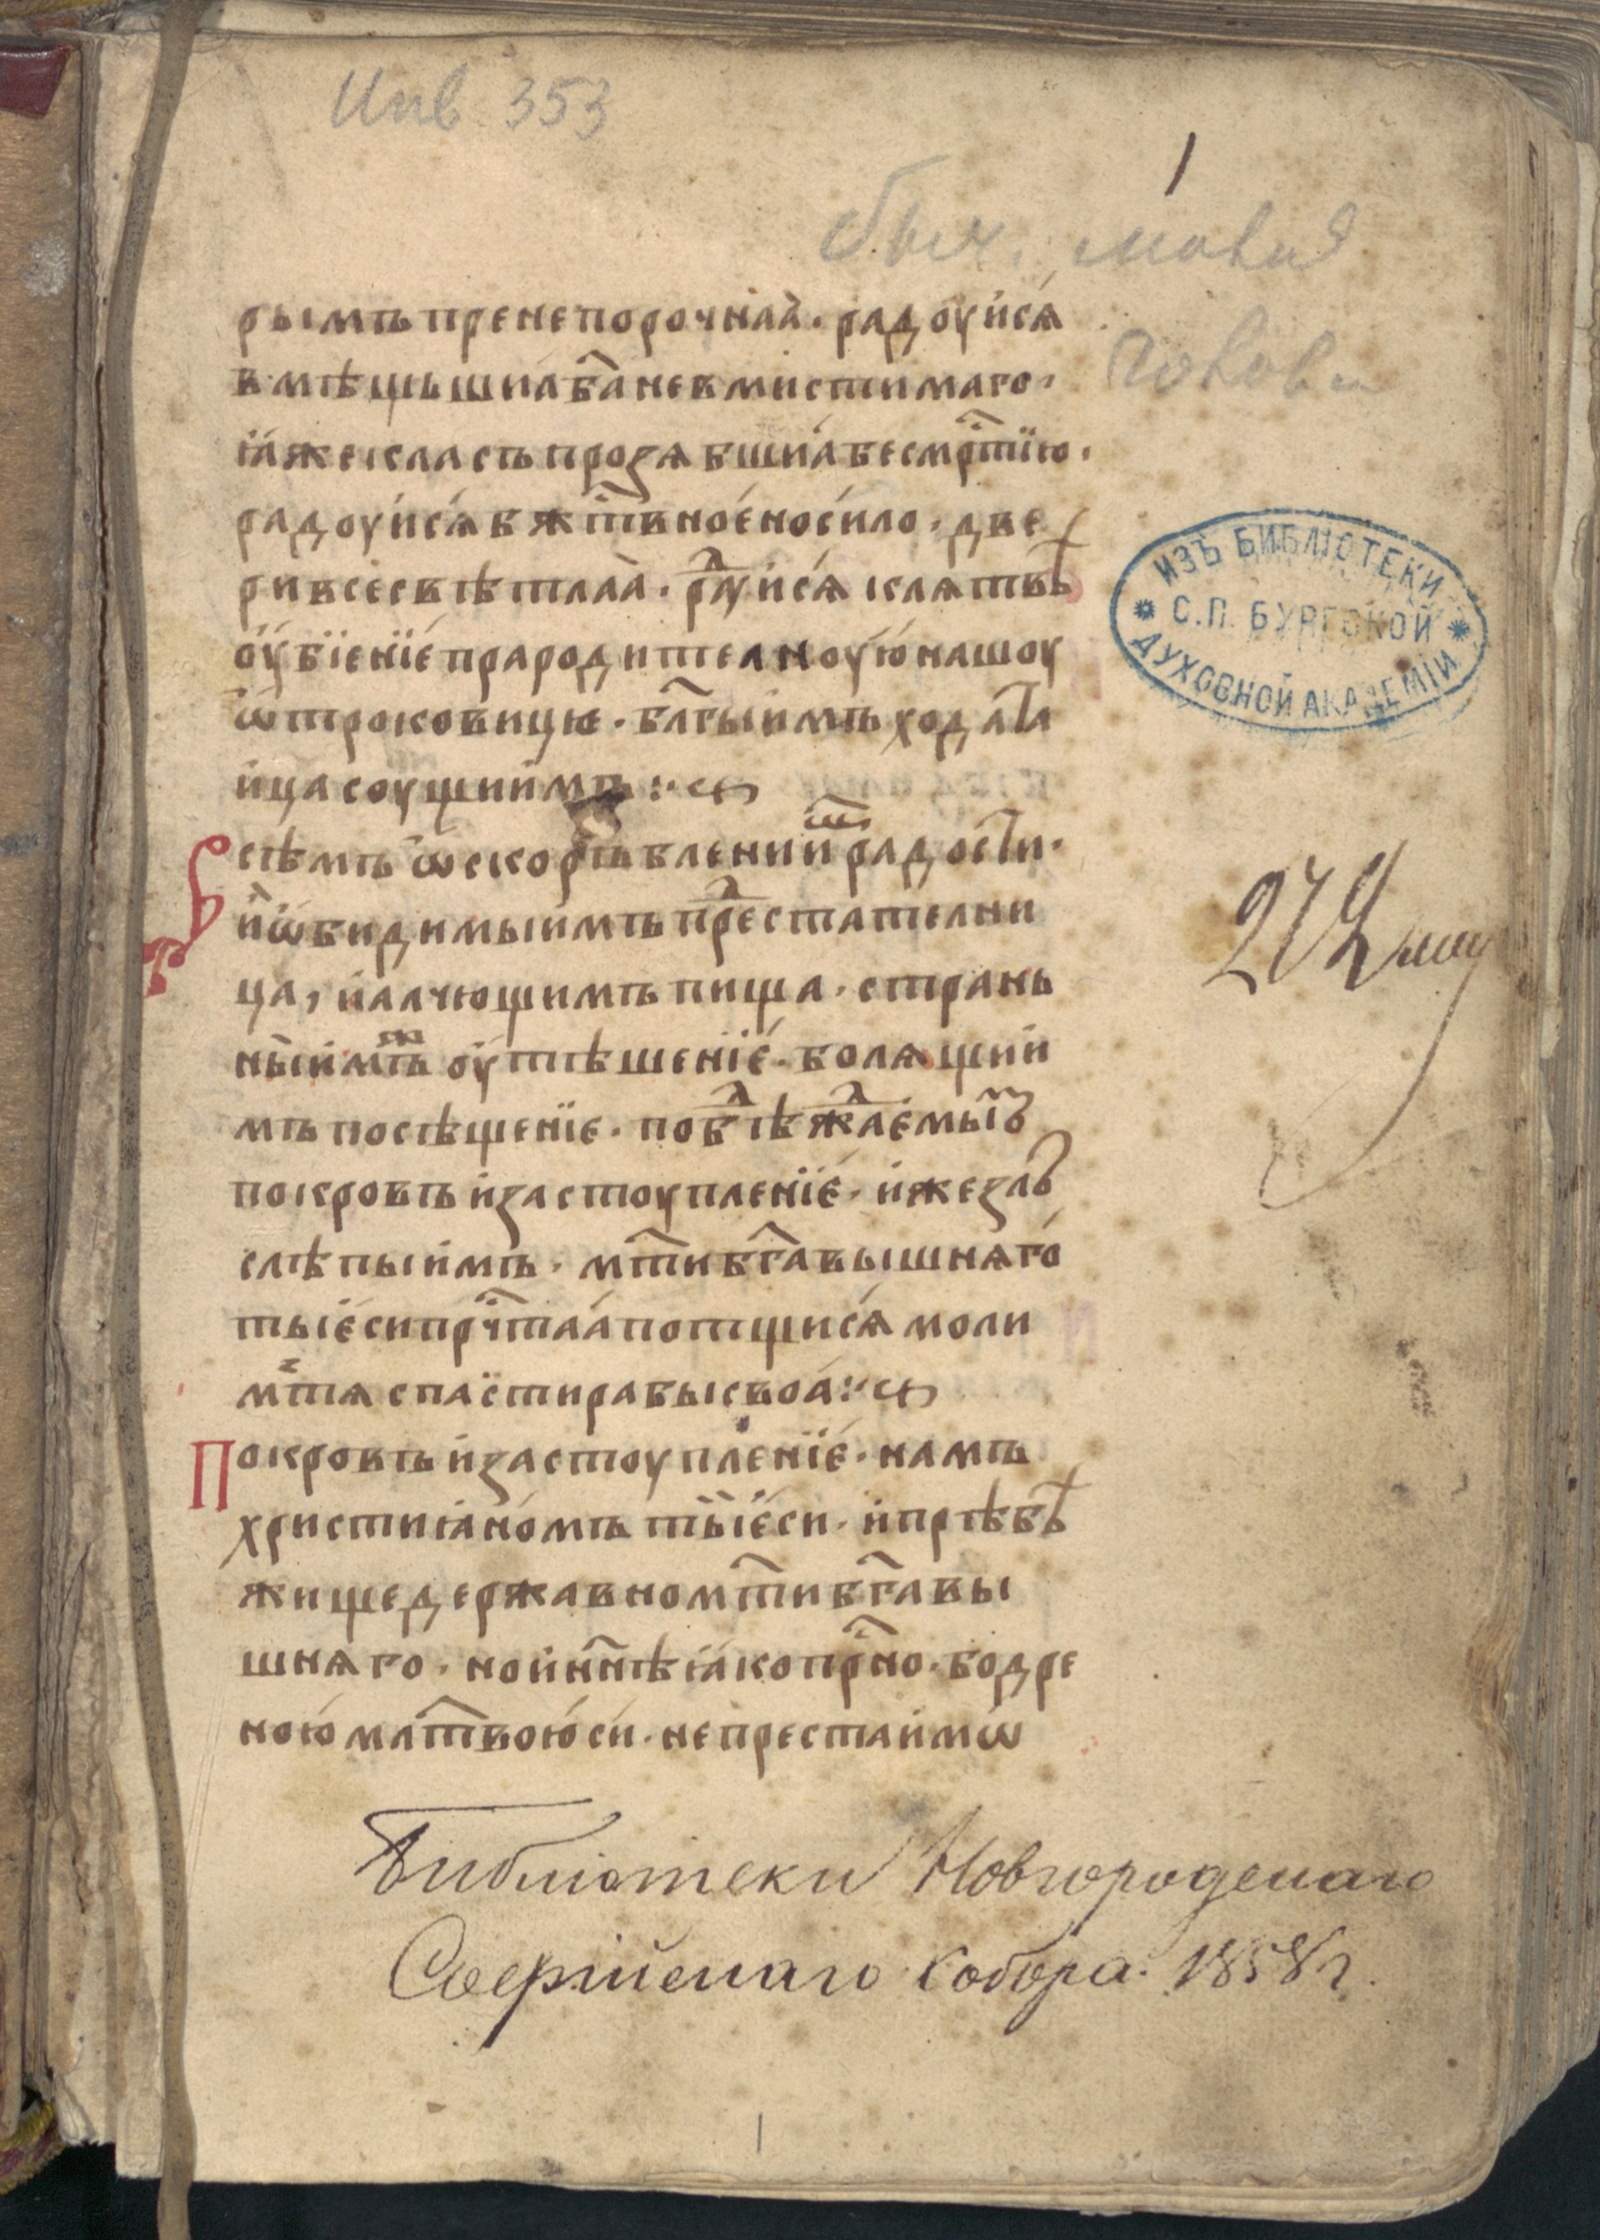 Инв 353
1
рымъ пренепорочнаа҆. радоуйсѧ
вмѣщьшиѧ б҃а невмистимаго.
ꙗ҆же класъ прозѧбшиа бесмр҃тїю.
радоуйсѧ бж҃твное носило. две
ри всесвѣтлаа. раⷣуйсѧ клѧтвꙑ
оу҆бїенїе прародителноую нашоу
ѿтроковицю. бл҃гыимъ ходат҃а
ица соущиимъ :·
сѣмъ ѡ҆скорьблениⷨи радости.
и҆ ѡ҆бидимыимъ преⷣстателни
ца, и҆ алчющимъ пища. странь
ныимъⷤ оу҆тѣшенїе. болѧщии
мъ посѣщенїе. побѣⷤжаⷣемыⷨ
покровъ и҆ застоупленїе. и҆ жезлъ
слѣпыимъ. мт҃и б҃га вышнѧго
ты є҆си прч҃таа потщисѧ моли
м тѧ спасти рабы своа:·
Покровъ и҆ застоупленїе. намъ
христиꙗномъ ты є҆си. и҆ прѣбꙑ
жище державно мт҃и б҃га вы
шнѧго. но и нн҃ѣ ꙗко прⷭно. бодре
ною мл҃твою си. непрестаи мѡ
ИЗЪ БИБЛІОТЕКИ
С.П. БУРГСКОЙ
ДУХОВНОЙ АКАДЕМІИ
Библіотеки Новгородскаго
Софійскаго Собора. 1858 г.